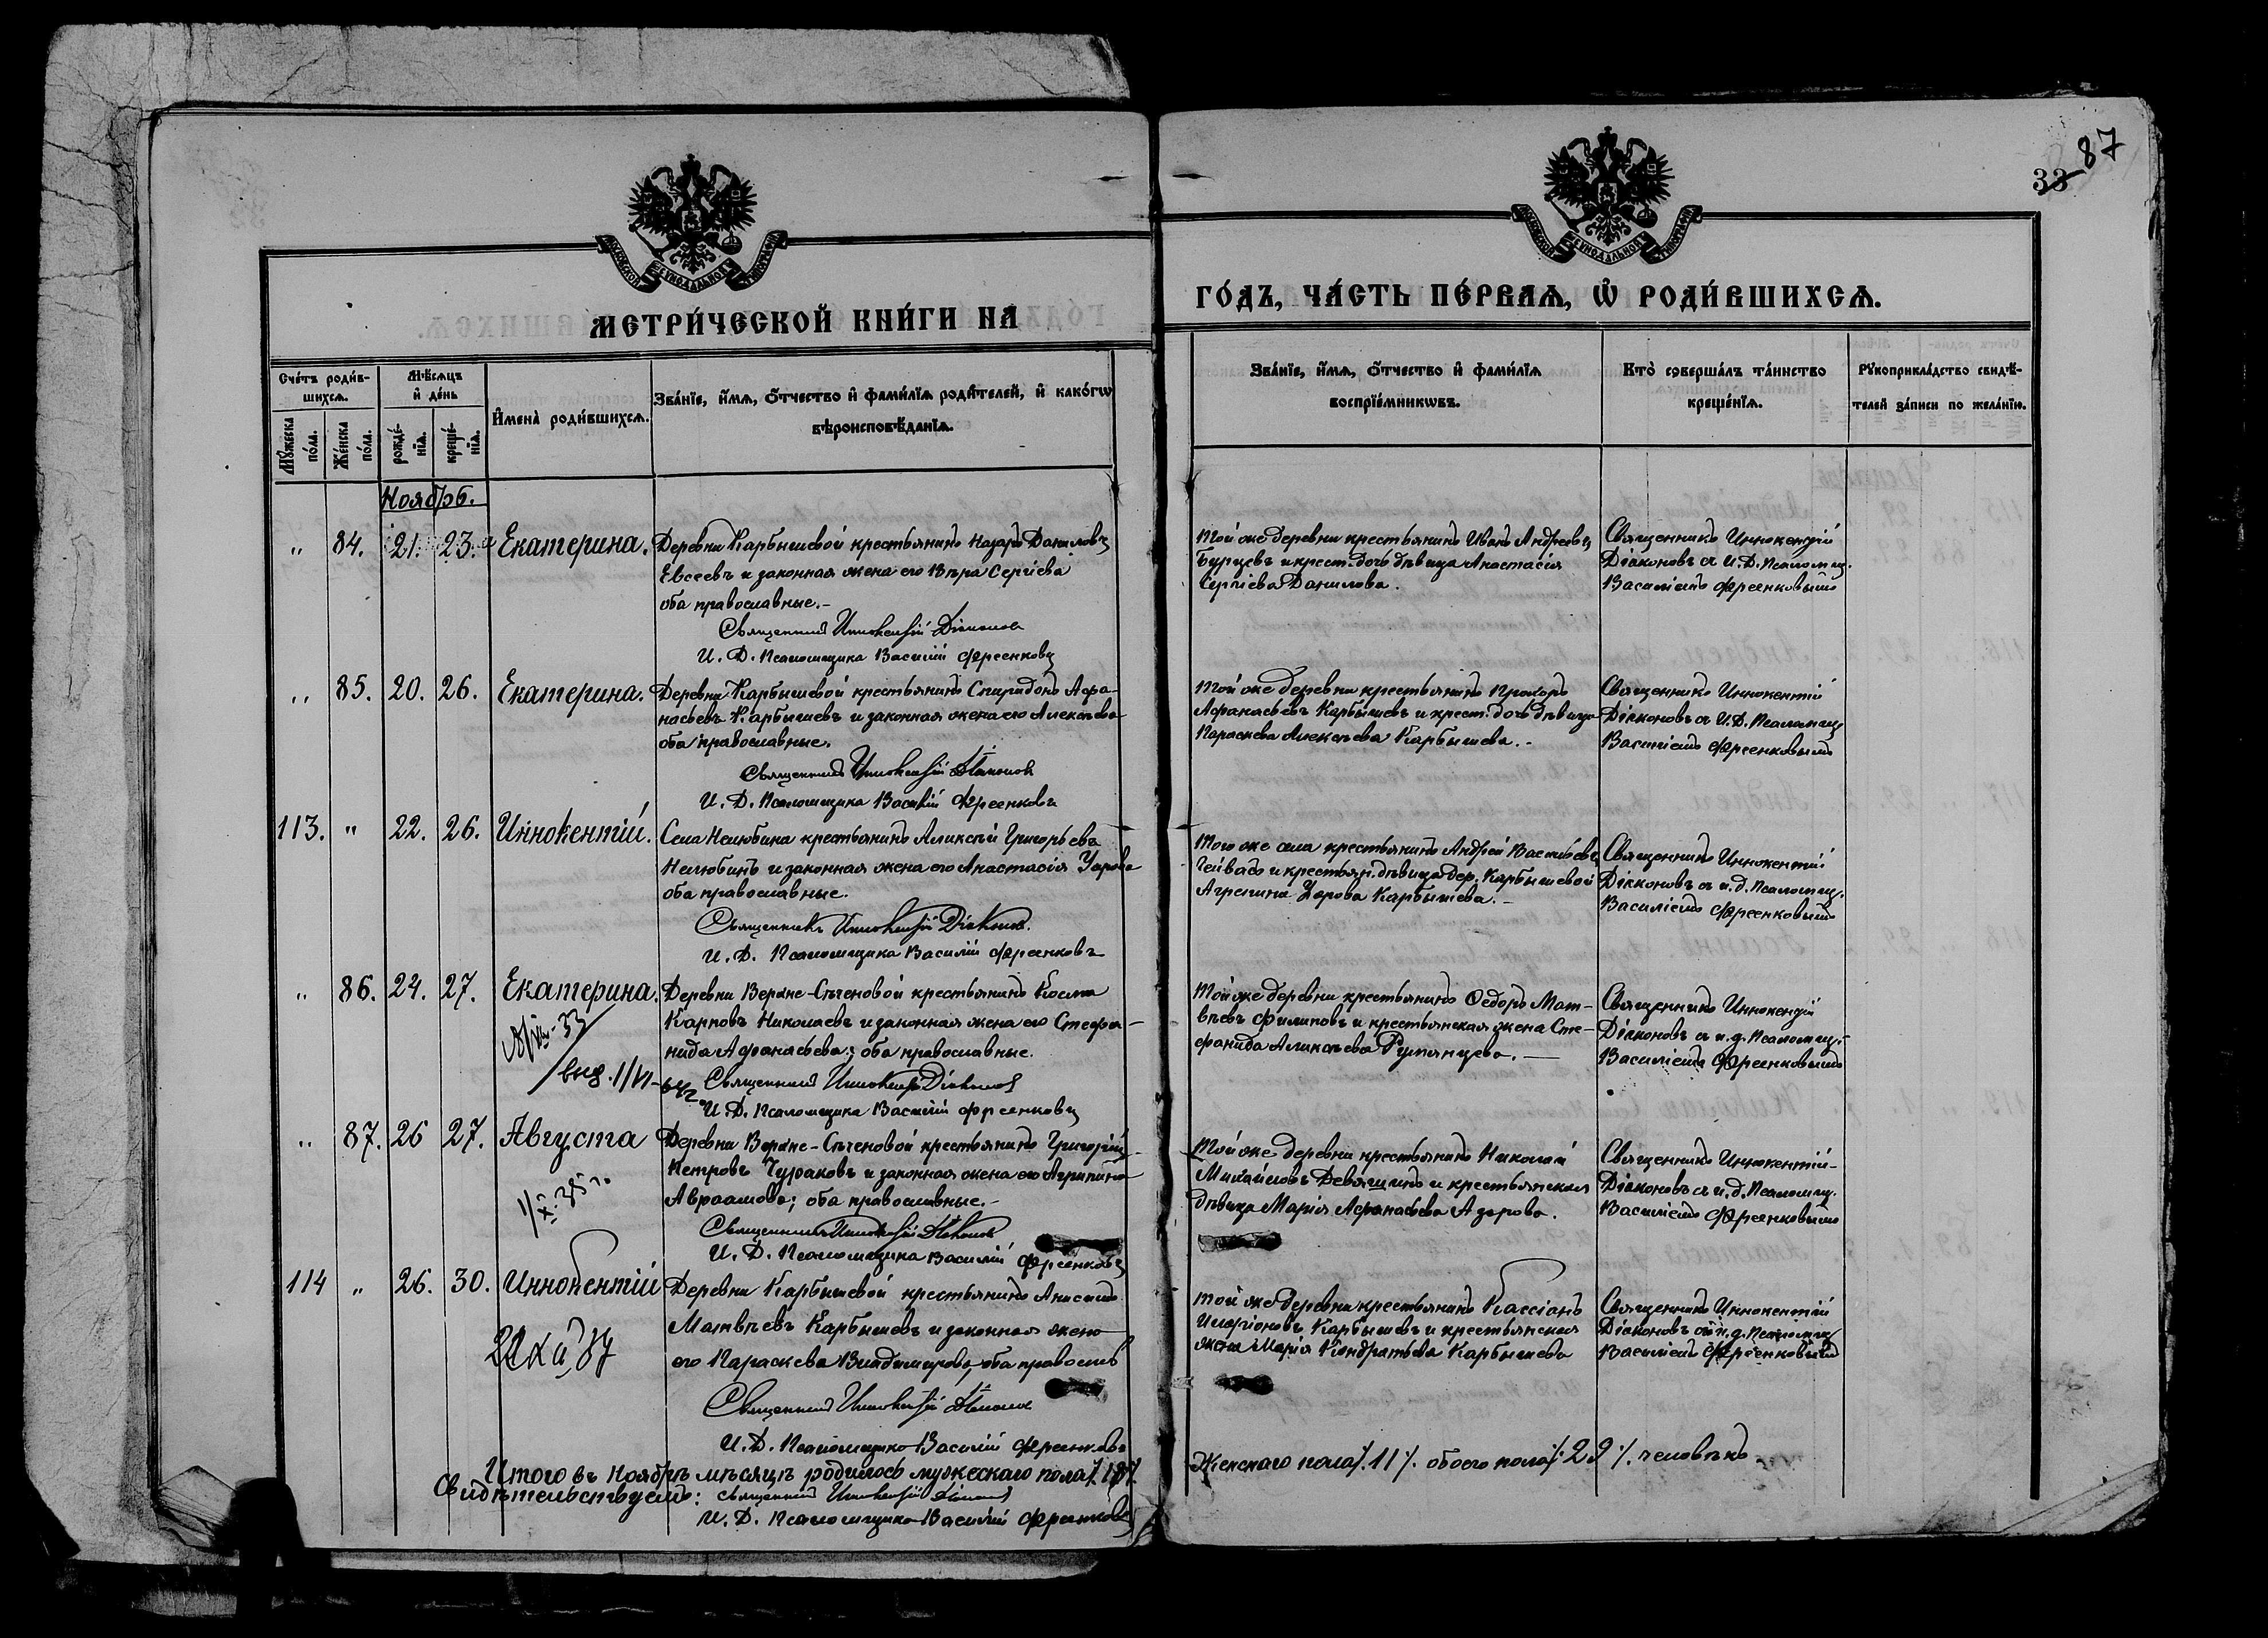 87
33
МОСКОВСКОЙ СѴНОДАЛЬНОЙ ТИПОГРАФІИ
МОСКОВСКОЙ СѴНОДАЛЬНОЙ ТИПОГРАФІИ
МЕТРИ́ЧЕСКОЙ КНИ́ГИ НА
ГО́ДЪ, ЧА́СТЬ ПЕ́РВАѦ, Ѡ҆ РОДИ́ВШИХСѦ.
Сче́тъ роди́в-
шихсѧ.
Мꙋ́жеска
по́ла.
Же́нска
по́ла.
Мѣ́сѧцъ
и҆ де́нь
рожде́-
нїѧ.
креще́-
нїѧ.
И҆мена̀ роди́вшихсѧ.
Зва́нїе, и҆́мѧ, ѻ҆́тчество и҆ фами́лїѧ роди́телей, и҆ како́гѡ
вѣроисповѣ́данїѧ.
Зва́нїе, и҆́мѧ, ѻ҆́тчество и҆ фами́лїѧ
воспрїе́мникѡвъ.
Кто̀ соверша́лъ та́инство
креще́нїѧ.
Рꙋкоприкла́дство свидѣ́-
телей за́писи по жела́нїю.
Ноябрь.
" 84. 21. 23. Екатерина.
Деревни Карбышевой крестьянинъ Назаръ Даниловъ
Евсеевъ и законная жена его Вѣра Сергіева
оба православные.-
Священникъ Иннокентій Діаконовъ
И. Д. Псаломщика Василій Фрсенковъ
Той же деревни крестьянинъ Иванъ Андреевъ
Бурцевъ и крест. дочь дѣвица Анастасія
Сергіева Данилова.
Священникъ Иннокентій
Діаконовъ съ И. Д. Псаломщ.
Василіемъ Фрсенковымъ
" 85. 20. 26. Екатерина.
Деревни Карбышевой крестьянинъ Спиридонъ Афа-
насьевъ Карбышевъ и законная жена его Алексѣева
оба православные.
Священникъ Иннокентій Діаконовъ
И. Д. Псаломщика Василій Фрсенковъ
Той же деревни крестьянинъ Прохоръ
Афанасьевъ Карбышевъ и крест. дочь дѣвица
Параскева Алексѣева Карбышева.-
Священникъ Иннокентій
Діаконовъ съ И. Д. Псаломщ
Василіемъ Фрсенковымъ
113. " 22. 26. Иннокентій.
Села Нелюбина крестьянинъ Алексѣй Григорьевъ
Нелюбинъ и законная жена его Анастасія Уарова
оба православные.
Священникъ Иннокентій Діаконовъ.
И. Д. Псаломщика Василій Фрсенковъ
Того же села крестьянинъ Андрей Васильевъ
и крестьян. дѣвица дер. Карбышевой
Агрепина Карбышева.-
Священникъ Иннокентій
Діаконовъ съ и. д. Псаломщ.
Василіемъ Фрсенковымъ
" 86. 24. 27. Екатерина.
Деревни Верхне-Сѣченовой крестьянинъ Косма
Карповъ Николаевъ и законная жена его Стефа-
нида Афанасьева; оба православные.
Священникъ Иннокентій Діаконовъ
И. Д. Псаломщика Василій Фрсенковъ
Той же деревни крестьянинъ Ѳедоръ Мат-
вѣевъ Филиповъ и крестьянская жена Сте-
фанида Алексѣева Румянцева.-
Священникъ Иннокентій
Діаконовъ съ и. д. Псаломщ.
Василіемъ Фрсенковымъ
" 87. 26 27. Августа
1/X-35 г.
Деревни Верхне-Сѣченовой крестьянинъ Григорій
Петровъ Чураковъ и законная жена его Агрипина
Авраамова; оба православные.-
Священникъ Иннокентій Діаконовъ
И. Д. Псаломщика Василій Фрсенковъ
Той же деревни крестьянинъ Николай
Михайловъ Девяшинъ и крестьянская
дѣвица Марія Афанасьева Азарова.
Священникъ Иннокентій
Діаконовъ съ и. д. Псаломщ.
Василіемъ Фрсенковымъ
114 " 26. 30. Иннокентій
Деревни Карбышевой крестьянинъ Анисимъ
Матвѣевъ Карбышевъ и законная жена
его Параскева Владимирова, оба православ
Священникъ Иннокентій Діаконовъ
И. Д. Псаломщика Василій Фрсенковъ
Той же деревни крестьянинъ Кассіанъ
Иларіоновъ Карбышевъ и крестьянская
жена Марія Кондратьева Карбышева
Священникъ Иннокентій
Діаконовъ съ и. д. Псаломщ
Василіемъ Фрсенковымъ
Итого въ Ноябрѣ мѣсяцѣ родилось мужескаго пола 18
Женскаго пола /. 11 /. обоего пола /. 29 /. человѣкъ
Свидѣтельствуемъ: Священникъ Иннокентій Діаконовъ
И. Д. Псаломщика Василій Фрсенковъ